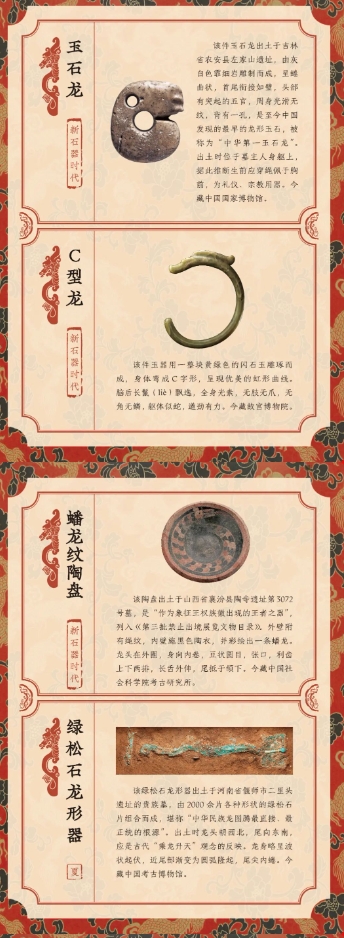 玉石龙
新石器时代
该件玉石龙出土于吉林
省农安县左家山遗址,由灰
白色霏细岩雕制而成,呈蜷
曲状,首尾衔接如璧,头部
有突起的五官,周身光滑无
纹,背有一孔,是至今中国
发现的最早的龙形玉石,被
称为“中华第一玉石龙”。
出土时位于墓主人身躯上,
据此推断生前应穿绳佩于胸
前,为礼仪、宗教用器。今
藏中国国家博物馆。
C型龙
新石器时代
该件玉器用一整块黄绿色的闪石玉雕琢而
成,身体弯成C字形,呈现优美的虹形曲线。
脑后长鬣(liè)飘逸,全身光素,无肢无爪、无
角无鳞,躯体似蛇,遒劲有力。今藏故宫博物院。
蟠龙纹陶盘
新石器时代
该陶盘出土于山西省襄汾县陶寺遗址第3072
号墓,是“作为象征王权族徽出现的王者之器”,
列入《第三批禁止出境展览文物目录》。外壁附
有绳纹,内壁施黑色陶衣,并彩绘出一条蟠龙。
龙头在外圈,身向内卷,豆状圆目,张口,利齿
上下两排,长舌外伸,尾抵于颌下。今藏中国社
会科学院考古研究所。
绿松石龙形器
夏
该绿松石龙形器出土于河南省偃师市二里头
遗址的贵族墓,由2000余片各种形状的绿松石
片组合而成,堪称“中华民族龙图腾最直接、最
正统的根源”。出土时龙头朝西北,尾向东南,
应是古代“乘龙升天”观念的反映。龙身略呈波
状起伏,近尾部渐变为圆弧隆起,尾尖内蜷。今
藏中国考古博物馆。